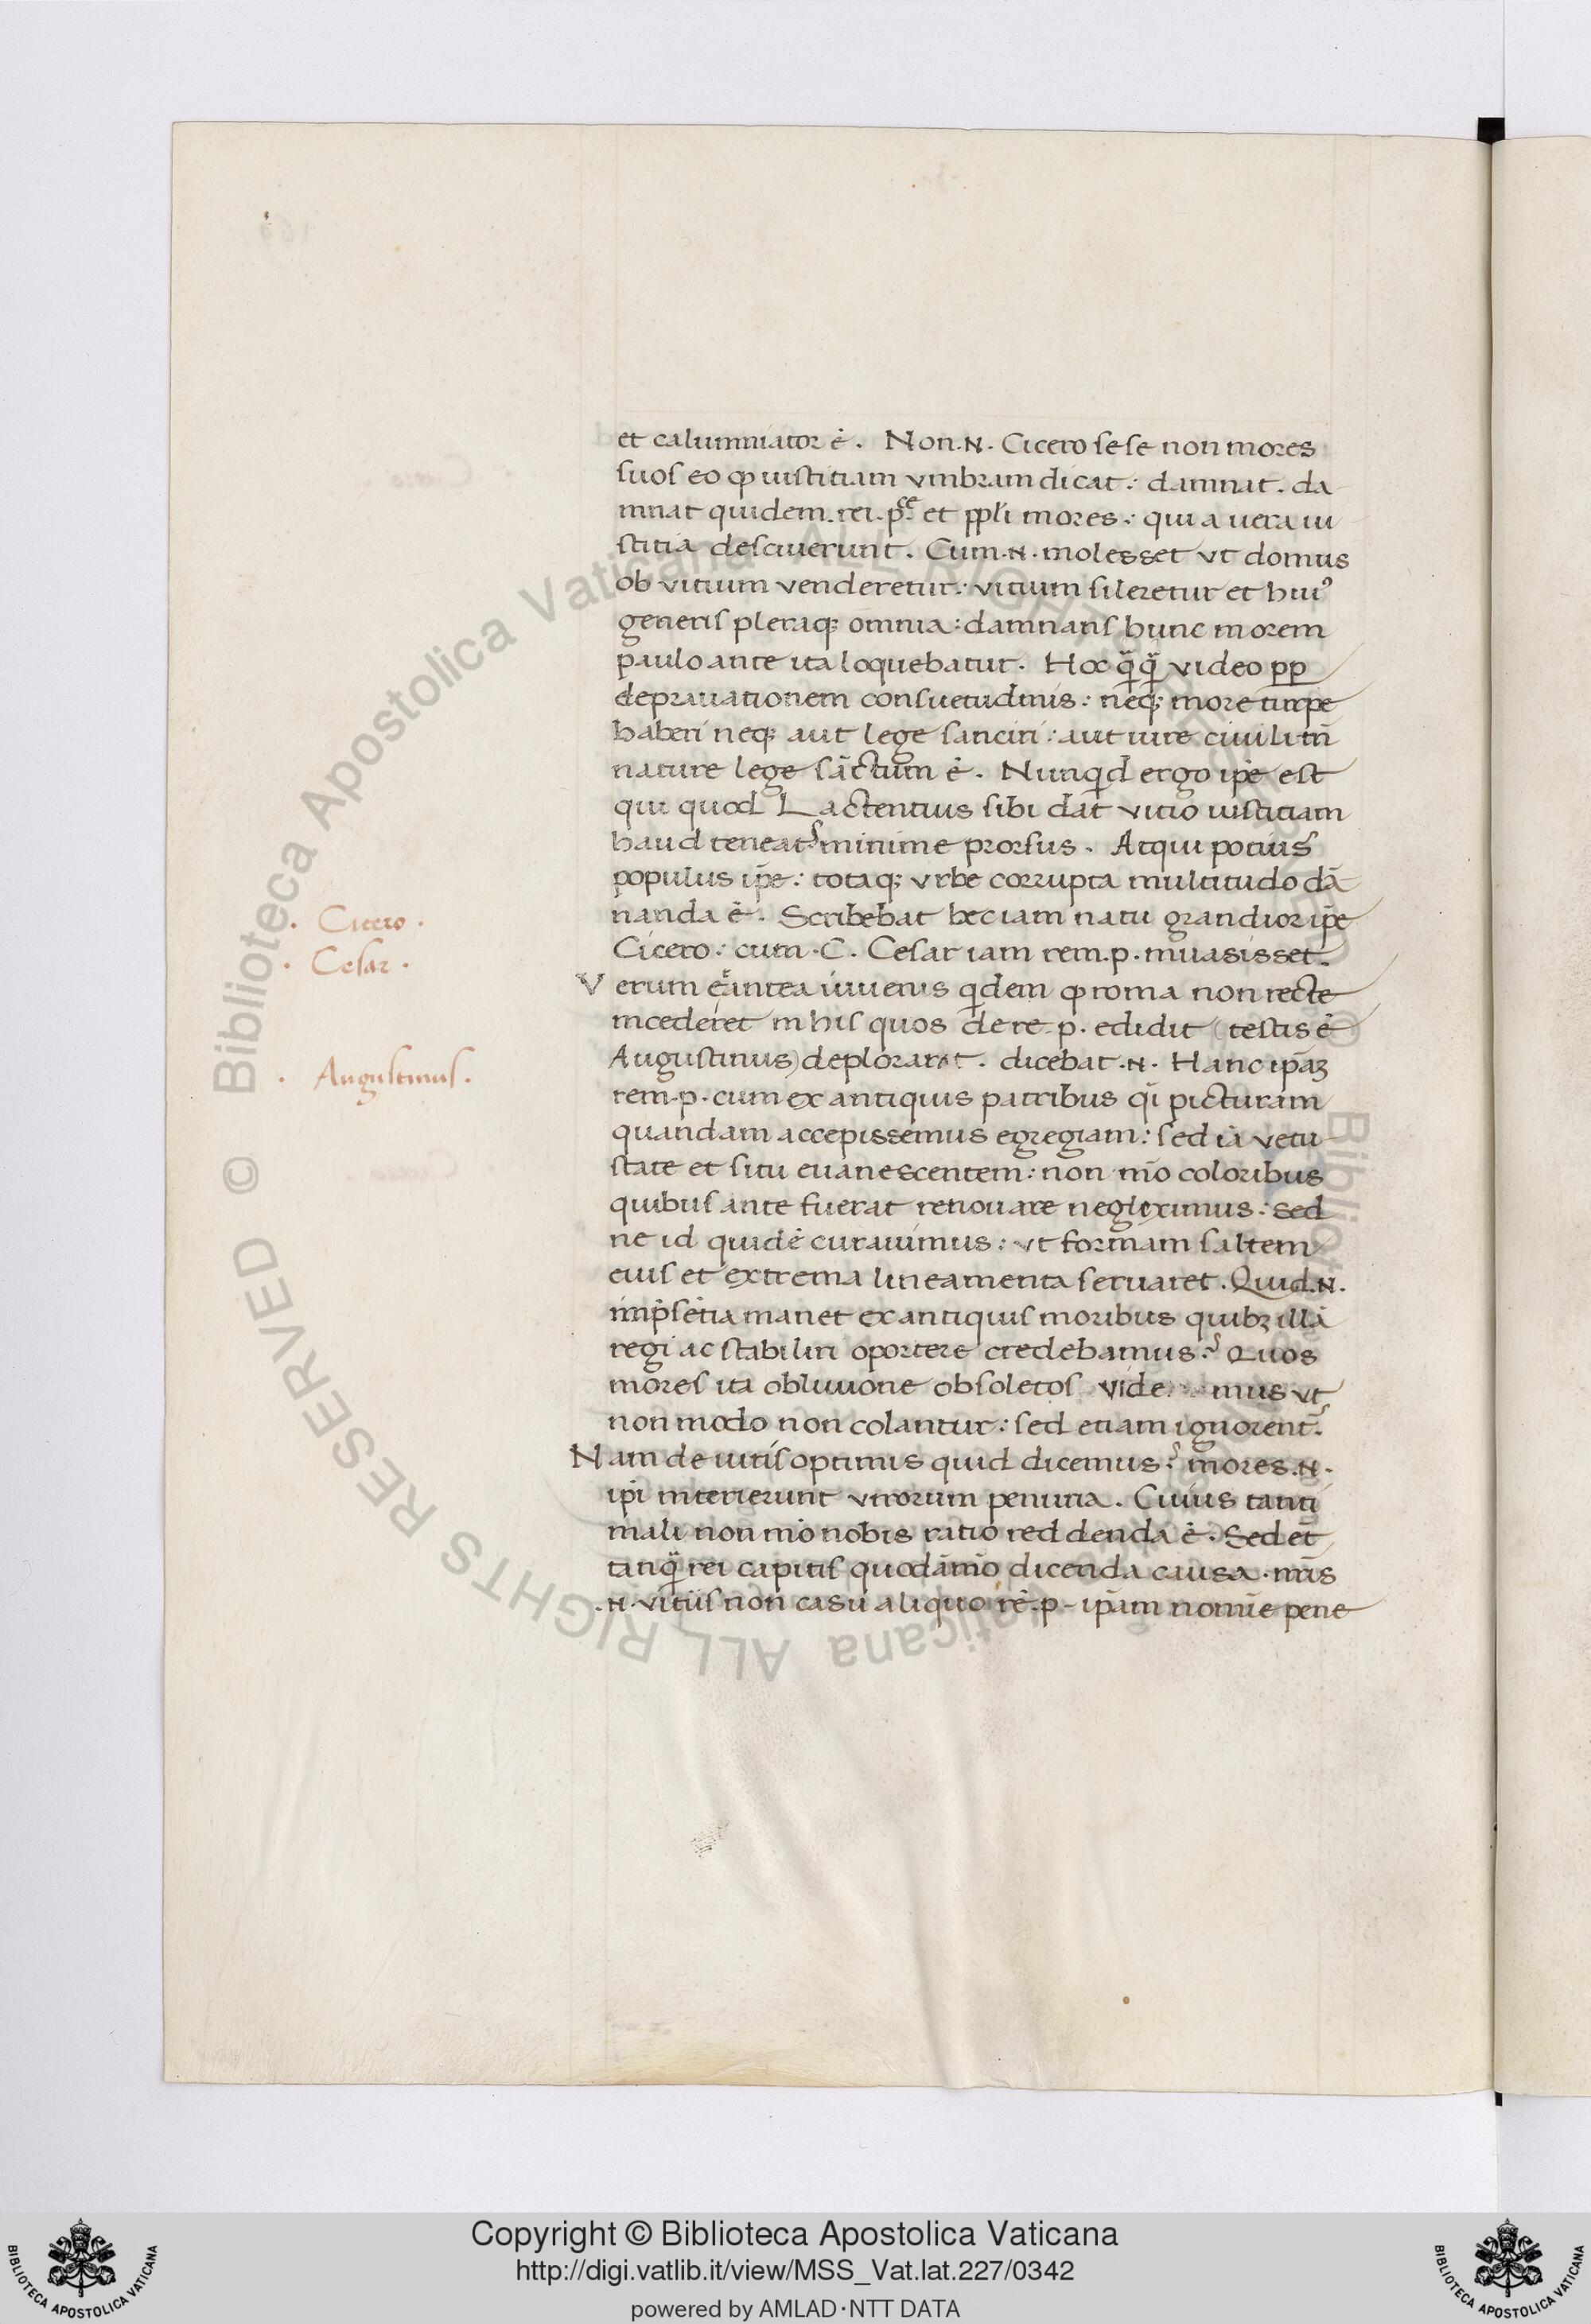 et calumniator ē. Non .N. Cicero sese non mores
suos eo ꝙ iustitiam vmbram dicat: damnat. da-
mnat quidem rei .p.ce et ppli mores: qui a uera iu
stitia desciuerunt. Cum .N. molesset vt domus
ob vitium venderetur: vitium sileretur et huiꝰ
generis pleraqꝫ omnia: damnans hunc morem
paulo ante ita loquebatur. Hoc q̄q̄ video pp
deprauationem consuetudinis: neqꝫ more turpe
haberi neqꝫ aut lege sanciri: aut iure ciuili tn̄
nature lege sāctum ē. Nunqd ergo ip̄e est
qui quod Lactentius sibi dat vitio iustitiam
haud teneat? minime prorsus. Atqui potius
populus ip̄e: totaqꝫ vrbe corrupta multitudo dā
nanda ē. Scribebat hec iam natu grandior ip̄e
Cicero: cum .C. Cesar iam rem .p. inuasisset.
Verum antea iuuenis qdem ꝙ roma non recte
incederet in his quos de re .p. edidit (testis ē
Augustinus) deplorarat. dicebat .N. Hanc ip̄aꝫ
rem .p. cum ex antiquis patribus qi picturam
quandam accepissemus egregiam: sed iā vetu-
state et situ euanescentem: non mō coloribus
quibus ante fuerat renouare negleximus: sed
ne id quidē curauimus: vt formam saltem
eius et extrema lineamenta seruaret. Quid .N.
imp̄sētia manet ex antiquis moribus quibꝫ illā
regi ac stabiliri oportere credebamus? Quos
mores ita obliuione obsoletos vide mus vt
non modo non colantur: sed etiam ignorent.
Nam de uiris optimis quid dicemus? mores .N.
ip̄i interierunt virorum penuria. Cuius tanti
mali non mō nobis ratio reddenda ē. Sed et̄
tanq̄ rei capitis quodāmō dicenda causa. nr̄is
.N. vitiis non casu aliquo rē .p. ip̄am nomīe pene
. Cicero .
. Cesar .
. Augustinus .
© Biblioteca Apostolica Vaticana ALL RIGHTS RESERVED
Copyright © Biblioteca Apostolica Vaticana
http://digi.vatlib.it/view/MSS_Vat.lat.227/0342
powered by AMLAD·NTT DATA
BIBLIOTECA APOSTOLICA VATICANA
BIBLIOTECA APOSTOLICA VATICANA